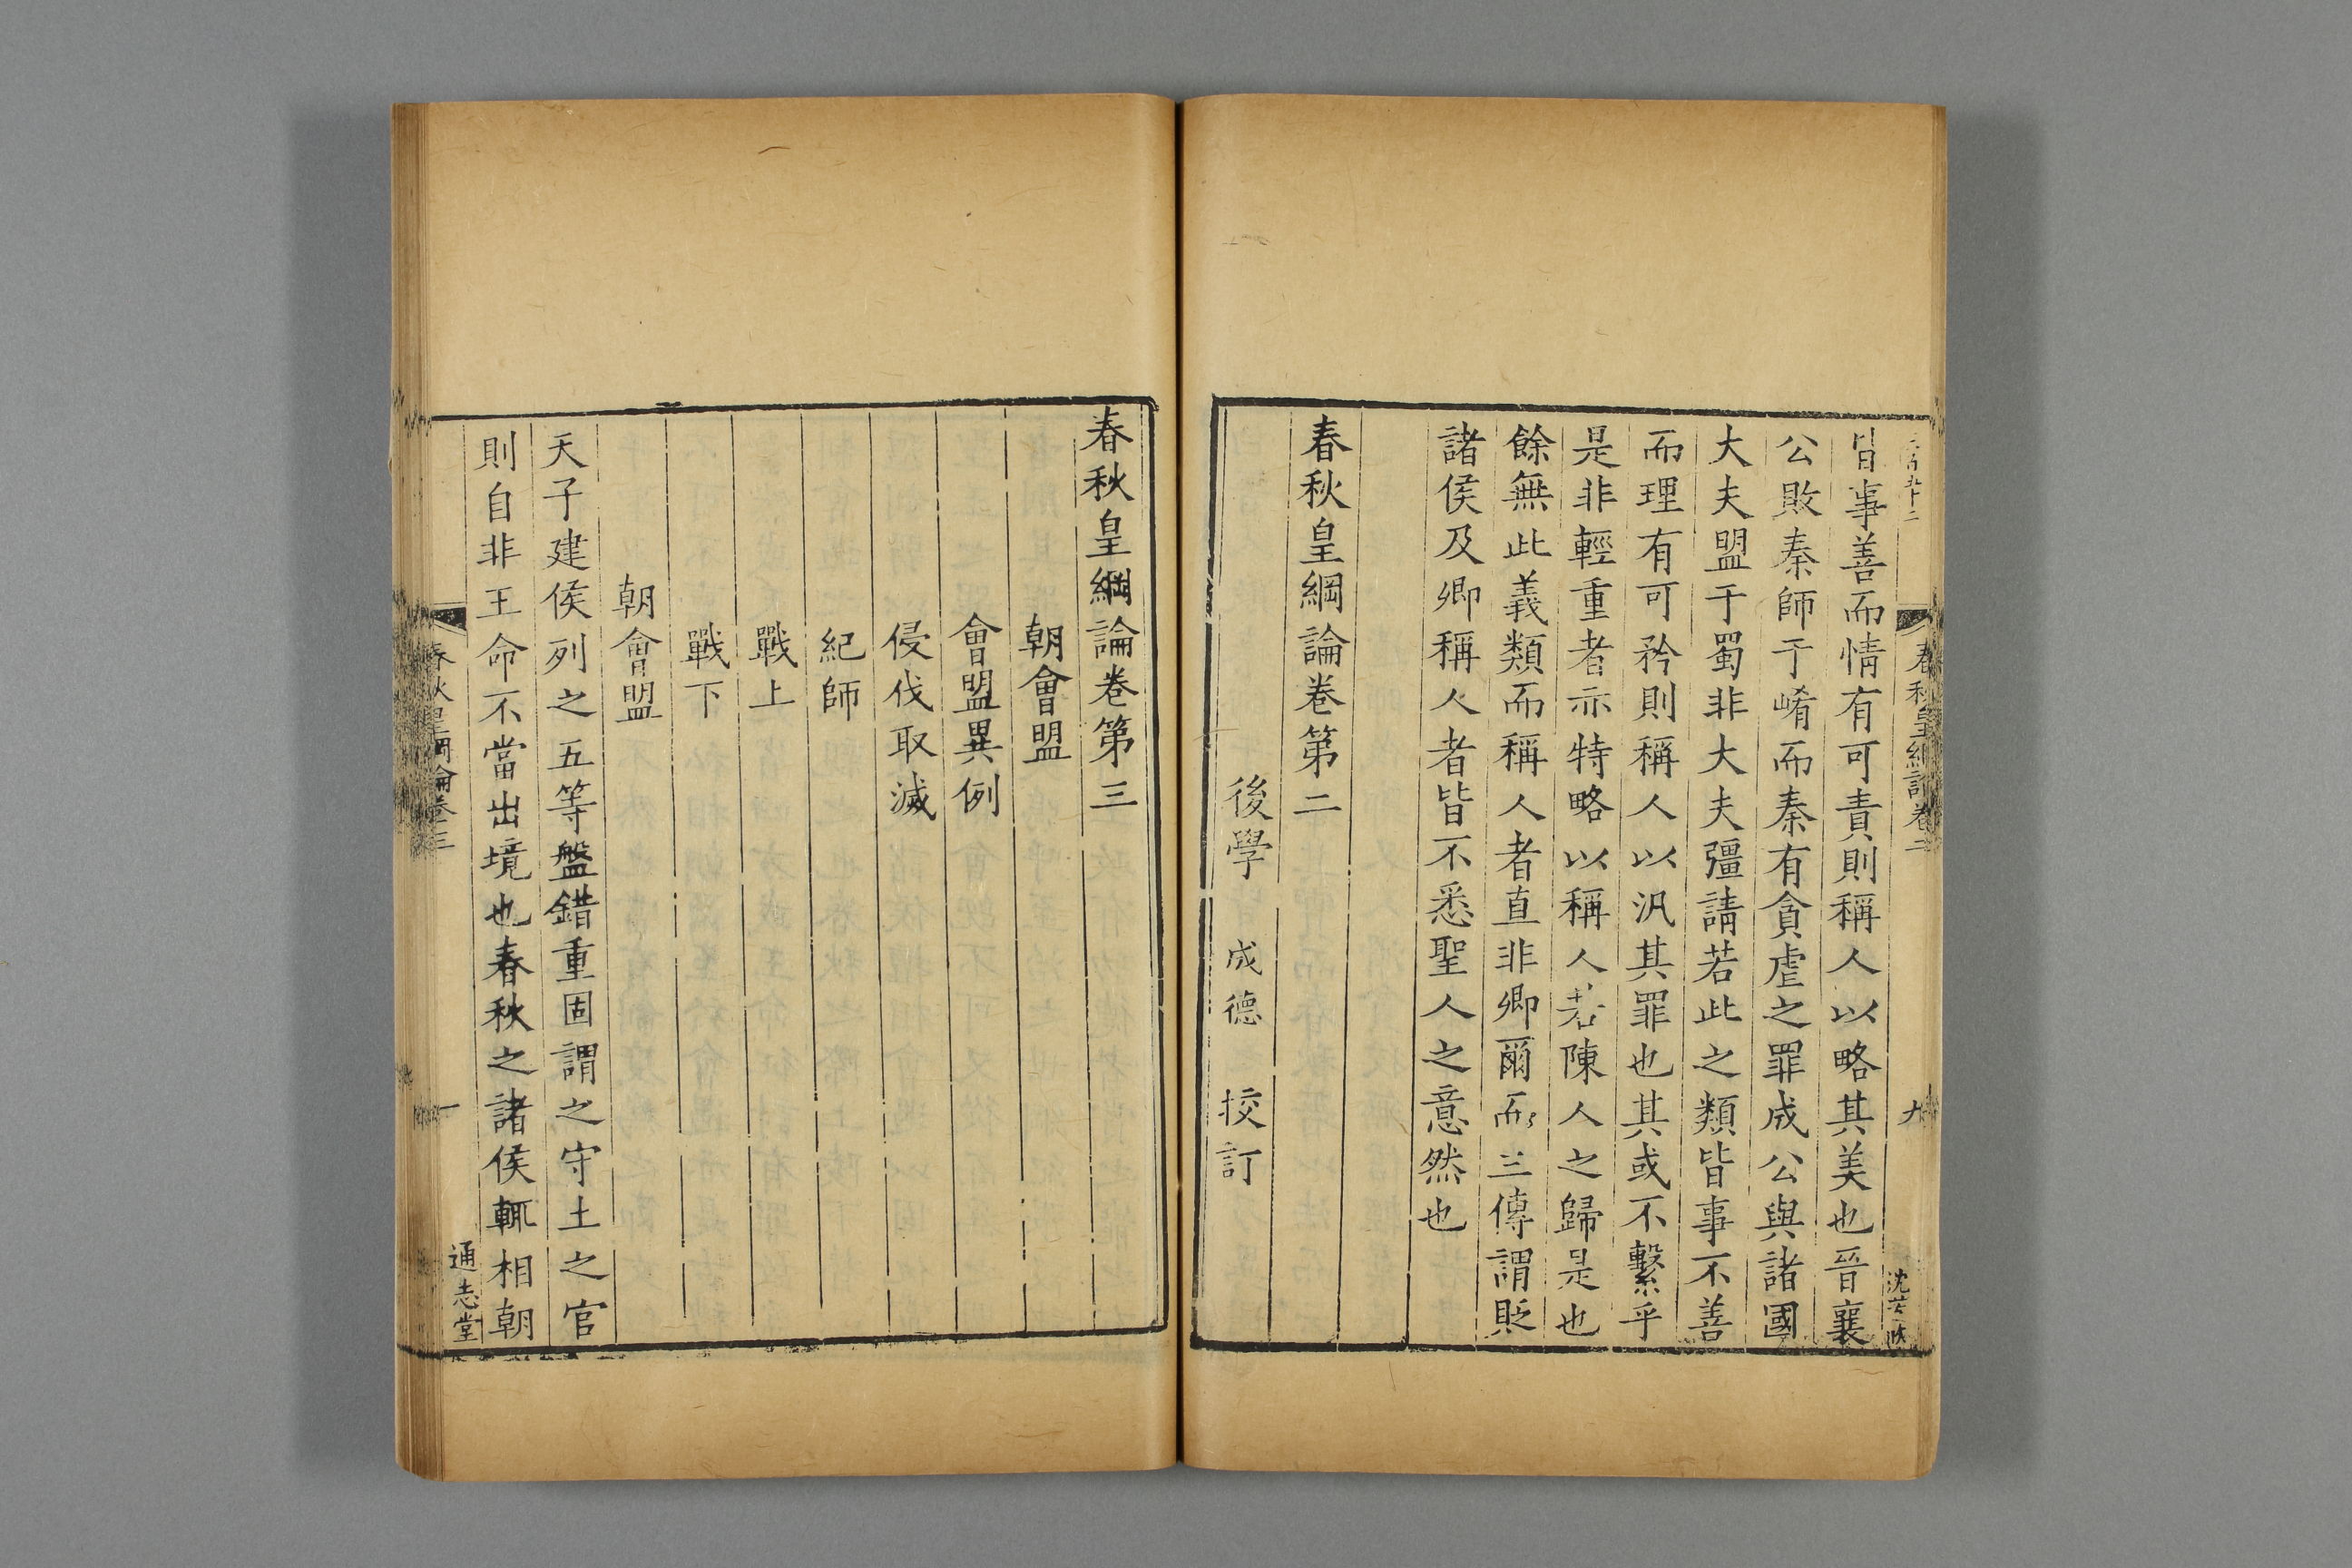 春秋皇綱論卷二
九
皆事善而情有可責則稱人以略其美也晉襄
公敗秦師于崤而秦有貪虐之罪成公與諸國
大夫盟于蜀非大夫彊請若此之類皆事不善
而理有可矜則稱人以汎其罪也其或不繫乎
是非輕重者亦特略以稱人若陳人之歸是也
餘無此義類而稱人者直非卿爾而三傳謂貶
諸侯及卿稱人者皆不悉聖人之意然也
春秋皇綱論卷第二
後學 成德 挍訂
春秋皇綱論卷第三
朝會盟
會盟異例
侵伐取滅
紀師
戰上
戰下
朝會盟
天子建侯列之五等盤錯重固謂之守土之官
則自非王命不當出境也春秋之諸侯輒相朝
春秋皇綱論卷三
一
通志堂